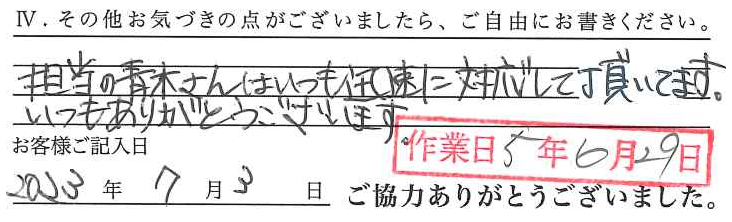 Ⅳ．その他お気づきの点がございましたら、ご自由にお書きください。
担当の青木さんはいつも迅速に対応して頂いてます。
いつもありがとうございます。
お客様ご記入日
作業日5年6月29日
2023年7月3日
ご協力ありがとうございました。